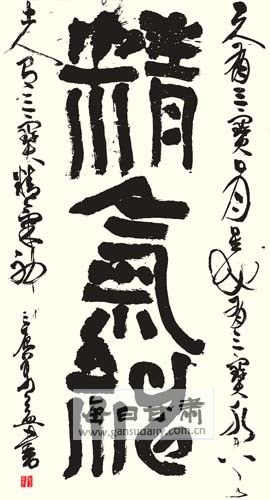 天有三寶日月星地有三寶水火
精氣神
土人有三寶精氣神
每日甘肃
www.gansudaily.com.cn